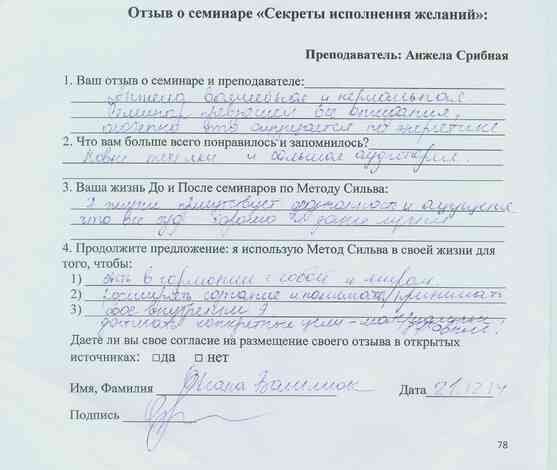 Отзыв о семинаре «Секреты исполнения желаний»:
Преподаватель: Анжела Срибная
1. Ваш отзыв о семинаре и преподавателе:
Анжела волшебная и нереальная
Семинар превзошел все ожидания,
особенно это ощущается по энергетике
2. Что вам больше всего понравилось и запомнилось?
Новые техники и большая аудитория.
3. Ваша жизнь До и После семинаров по Методу Сильва:
В жизни присутствует и ощущение
что все будет здорово и даже лучше
4. Продолжите предложение: я использую Метод Сильва в своей жизни для
того, чтобы:
1) Быть в гармонии с собой и миром
2) Расширять сознание и понимать/принимать
3) свое внутреннее Я
достигать конкретные цели -
Даете ли вы свое согласие на размещение своего отзыва в открытых
источниках: □да □ нет
Имя, Фамилия Дата 21.12.14
Подпись
78